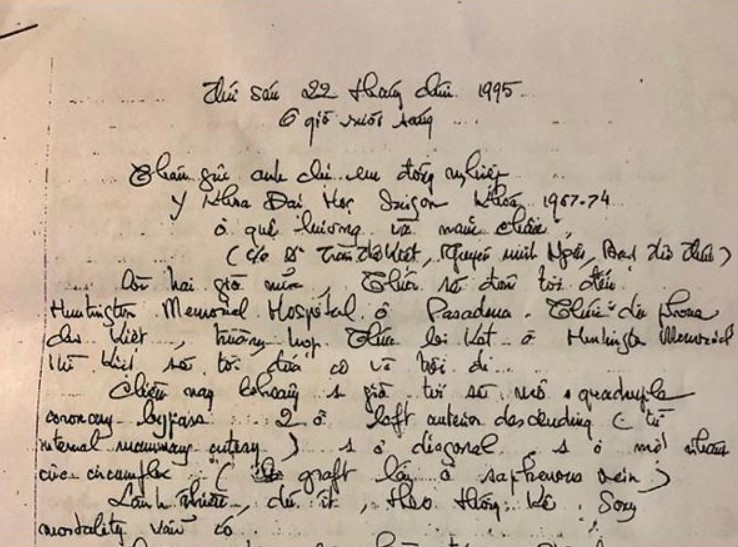 Thứ sáu 22 tháng chín 1995
6 giờ rưỡi sáng
Thân gửi anh chị em đồng nghiệp
Y Khoa Đại Học Saigon Khóa 1967-74
ở quê hương và năm châu,
(c/o BS Trần Thế Kiệt, Nguyễn minh Ngôn,
Còn hai giờ nữa, Thức sẽ đưa tới đến
Huntington Memorial Hospital ở Pasadena. Thức phone
cho Kiệt, trường hợp ở Huntington Memorial
thì Kiệt sẽ tới đưa cô về hội đi.
Chiều nay khoảng 1 giờ tới sẽ mổ quadruple
coronary bypass 2 ở left anterior descending (từ
internal mammary artery) 1 ở diagonal 1 ở một nhánh
của circumflex (graft lấy ở saphenous vein)
Lành nhiều, dữ ít, theo thống kê.
mortality vẫn có